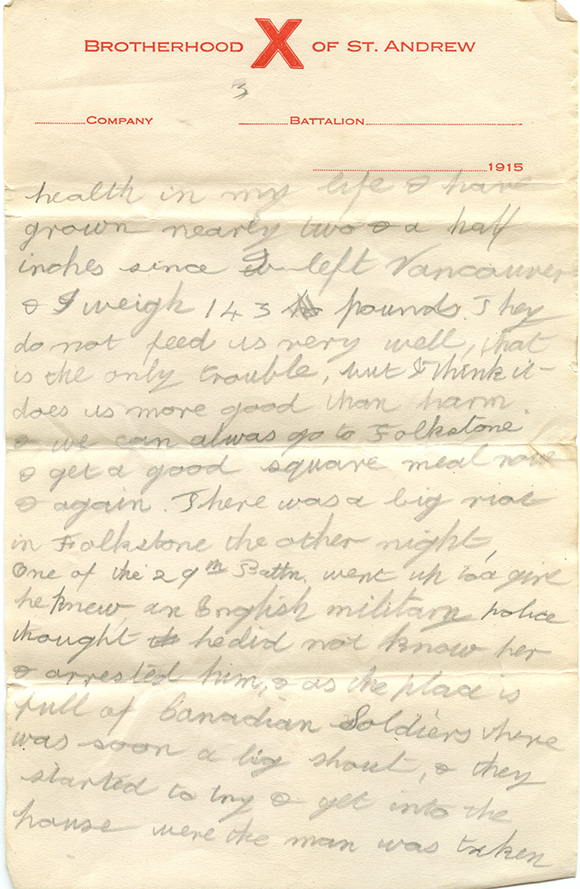 BROTHERHOOD X OF ST. ANDREW
3
COMPANY BATTALION
1915
health in my life & have
grown nearly two & a half
inches since I left Vancouver
& I weigh 143 pounds. They
do not feed us very well, that
is the only trouble, but I think it
does us more good than harm.
& we can alwas go to Folkstone
& get a good square meal now
& again. There was a big riot
in Folkstone the other night,
One of the 29th Battn. went up to a girl
he knew, an English military police
thought he did not know her
& arrested him, & as the place is
full of Canadian Soldiers there
was soon a big shout, & they
started to try & get into the
house were the man was taken